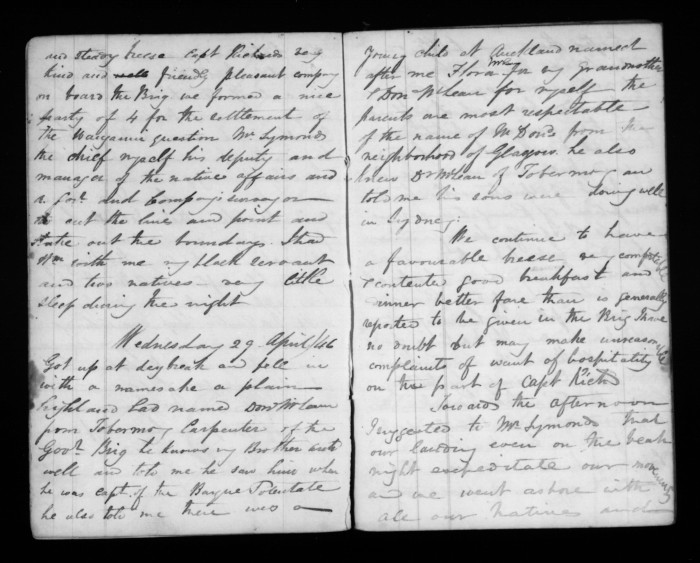 and steady breese Capt Richards very
kind and friendly pleasant company
on board the Brig we formed a nice
party of 4 for the settlement of
the Wanganui question Mr Symonds
the chief myself his deputy and
manager of the native affairs and
a Govt. and Company's surveyor
to cut the line and point and
out the boundary. I had
Wm with me my black servant
and two natives very little
sleep during the night
Wednesday 29 April/46
Got up at daybreak and fell in
with a namesake a plain
lad named Dond McLean
from Tobermory Carpenter of the
Govt. Brig he knows my Brother
well and told me he saw him when
he was capt. of the Barque
he also told me there was a
young child at Auckland named
after me Flora McL for my grandmother
& Don McLean for myself the
parents are most respectable
of the name of from the
neighborhood of Glasgow. he also
knew Dr McLean of Tobermory an
told me his sons were doing well
in Sydney.
We continue to have
a favourable breese very comfortable
& contented good breakfast and
dinner better fare than is generally
reported to be given in the Brig I have
no doubt but may make unreasonable
complaints of want of hospitality
on the part of Capt Richds
Towards the afternoon
I suggested to Mr Symonds that
our landing even on the beach
might expeditate our movements
and we went ashore with
all our natives and